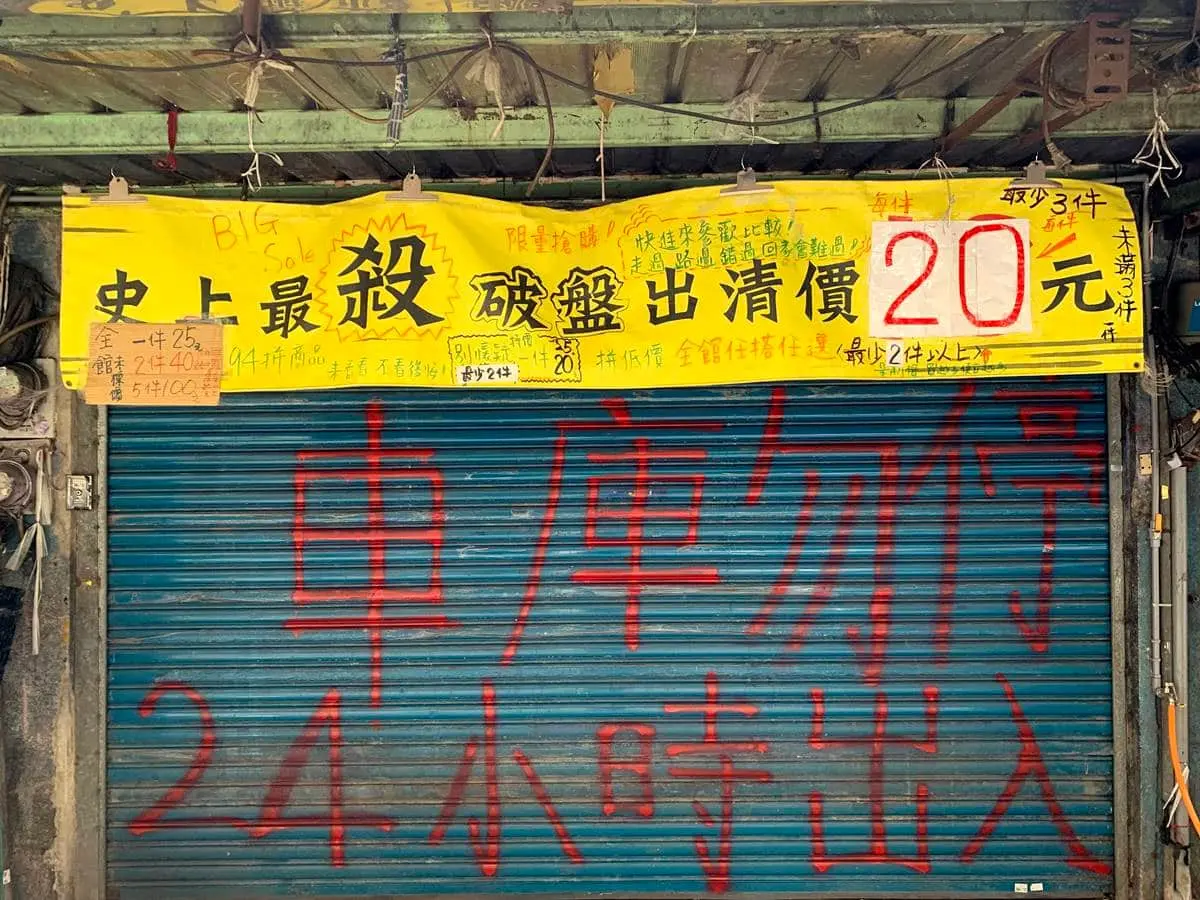 BIG
Sale
限量搶購!
快進來參歡比較!
走過路過錯過回家會難過!
每件
最少3件
每件
史上最殺破盤出清價20元
未滿3件
一件
全館
未標價
一件25元
2件40
5件100元
94拼商品
來看看不看後悔!
別懷疑
拼價
一件
25
20
最少2件
拼低價
全館任搭任選
(最少2件以上)
車庫勿停
24小時出入